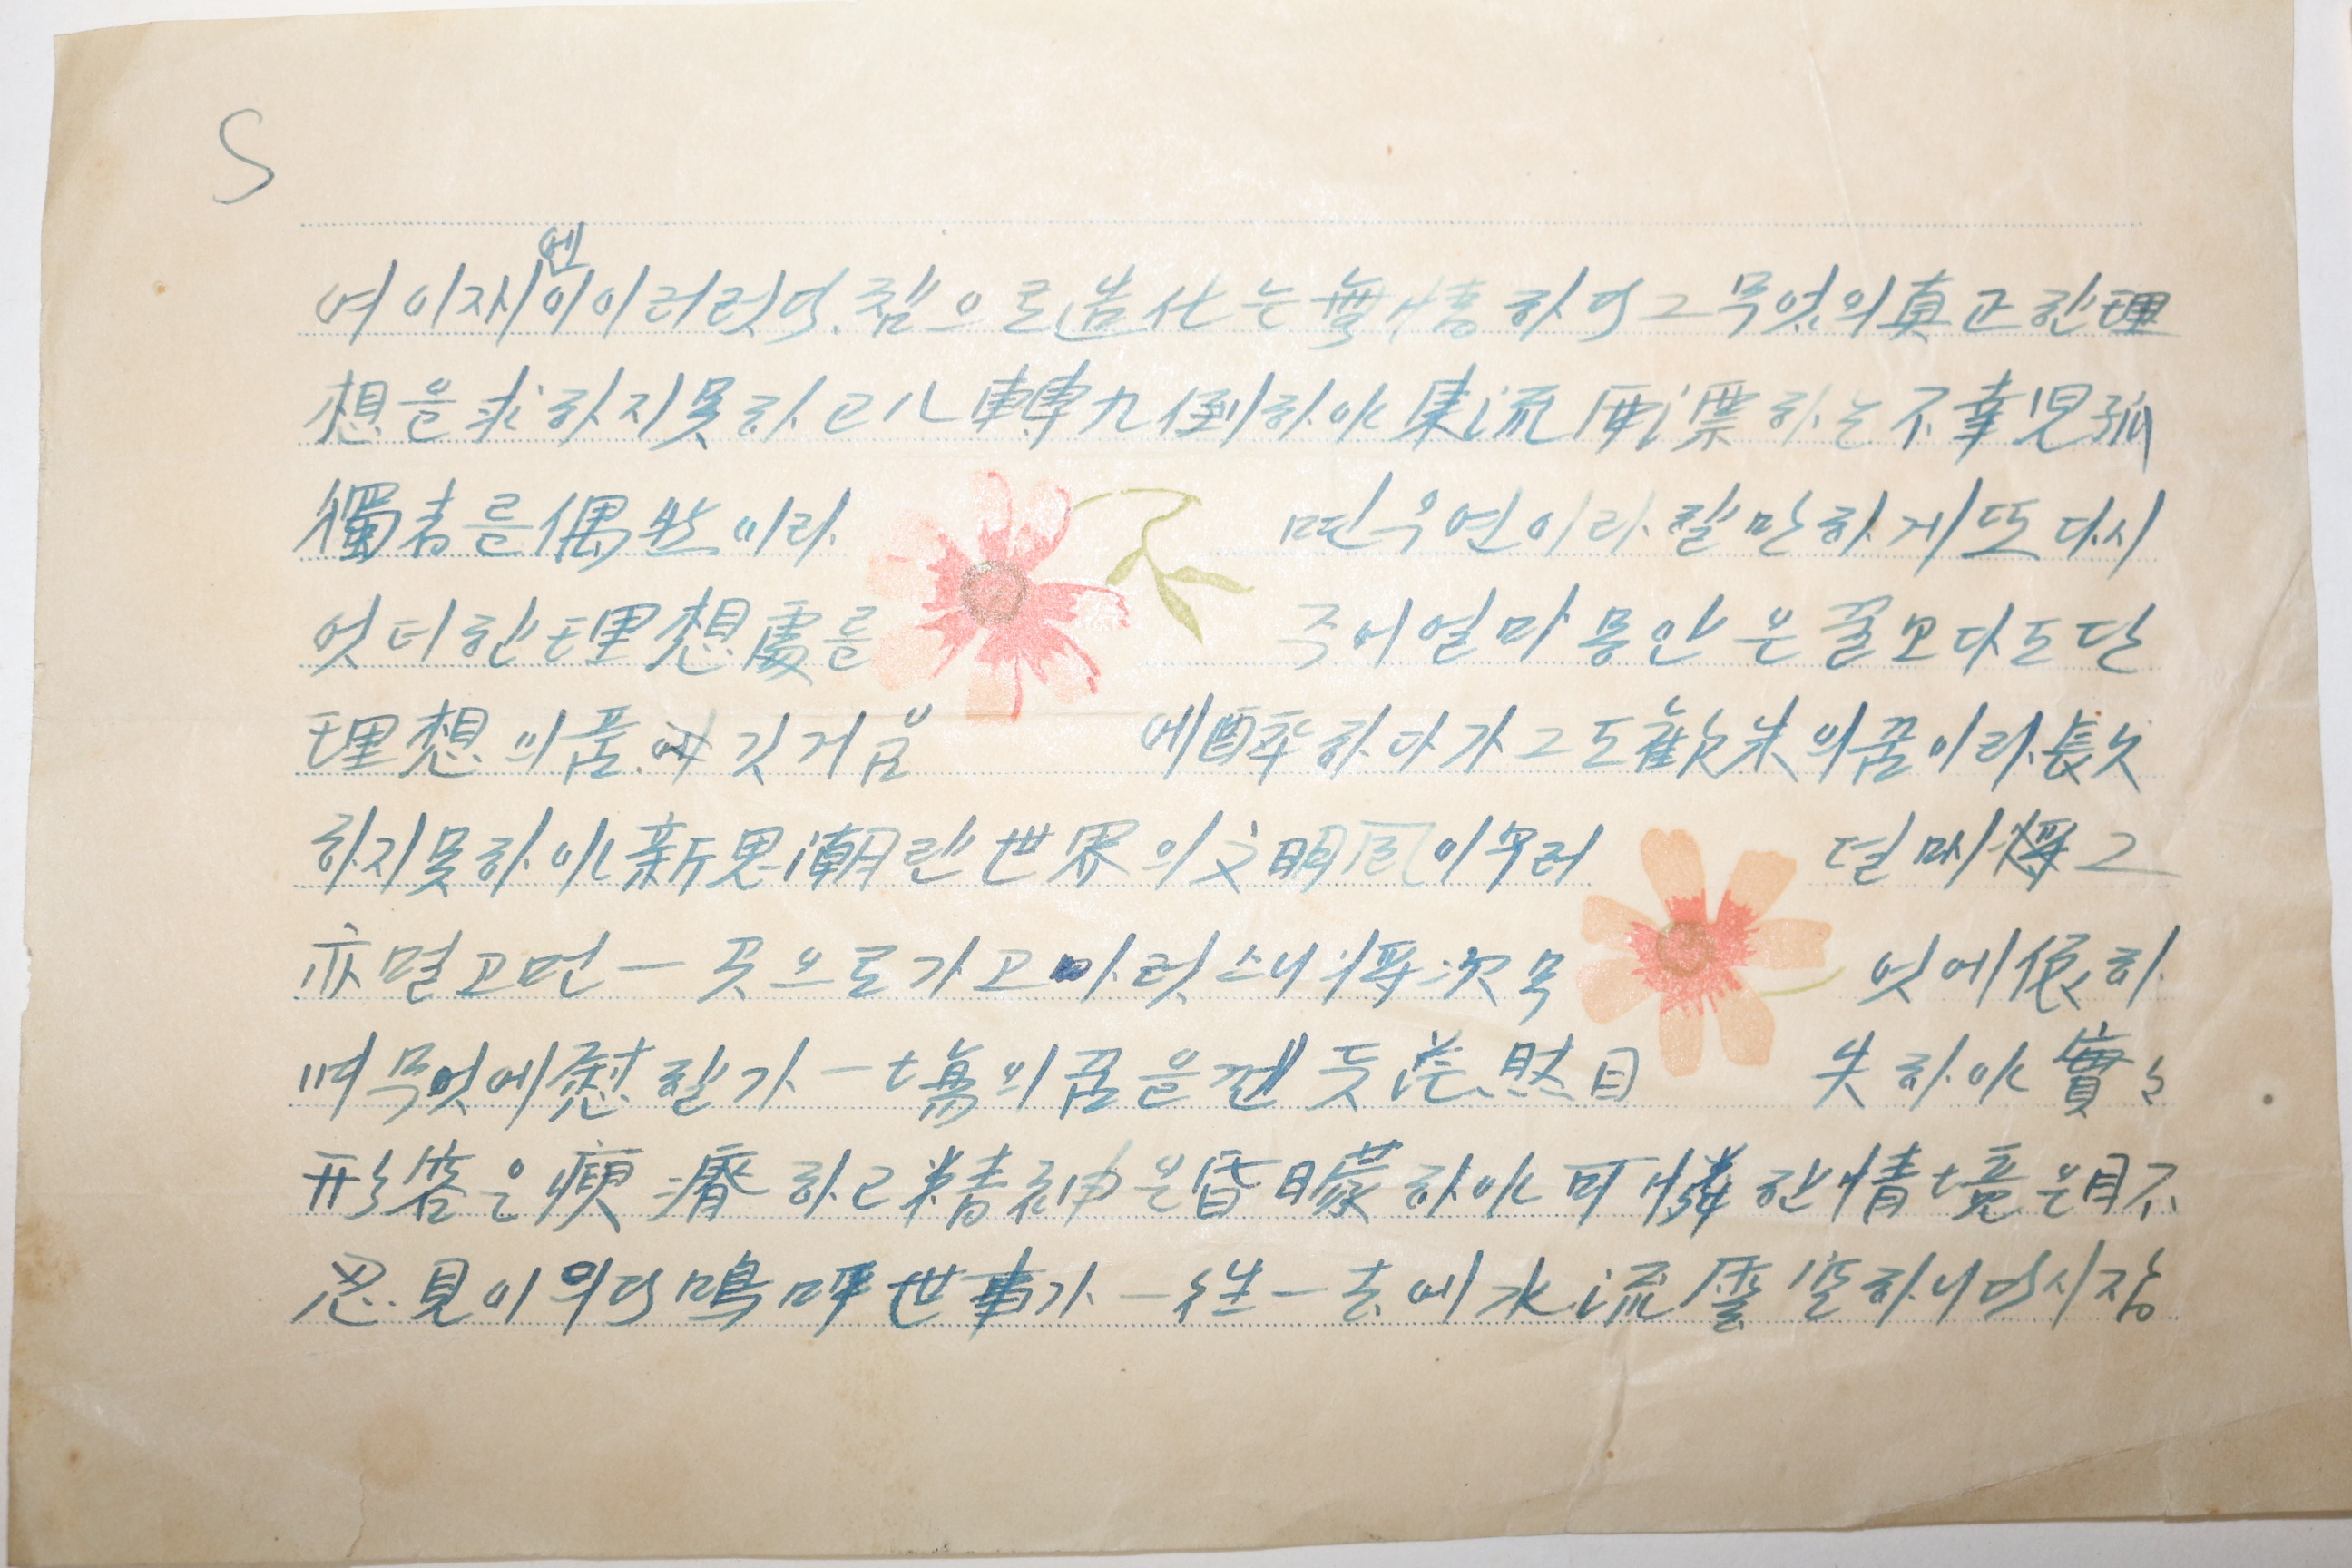 S
엔
여이제이이러럿다.참으로造化는無情하다그무엇의真正한理
想을求하지못하고八轉九倒하야東流西漂하는不幸児孤
獨者를偶然이라 면우연이라할만하게또다시
엇더한理想處를 주어얼마동안은꿀보다도단
理想의품에깃거움 에醉하다가그도歡未의꿈이라長久
하지못하야新思潮란世界의文明風이우리
亦멀고먼一곳으로가고마럿스니将次무 엇에依하
며무엇에慰할가一場의꿈을깬듯茫然自 失하야實々
形容은瘦瘠하고精神은昏曚하야可憐한情境은目不
忍見이외다嗚呼世事가一往一去에水流雲空하니다시잠